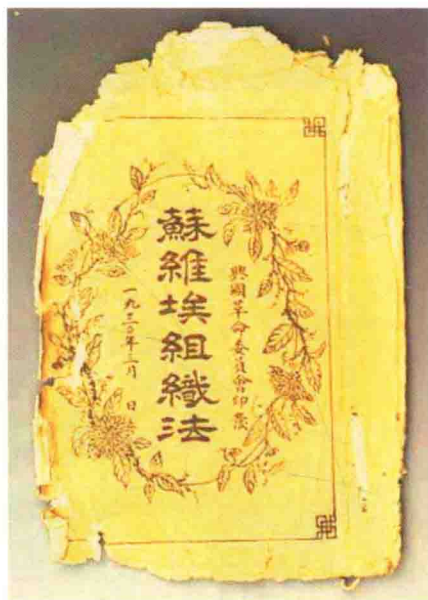 興國革命委員會印發
蘇維埃組織法
一九三〇年三月 日